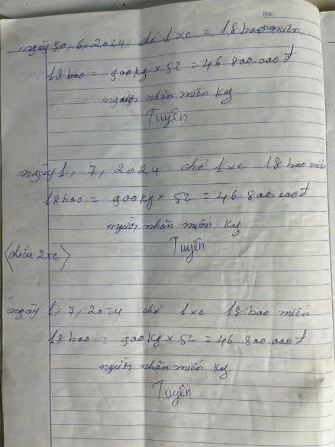 No.
ngày 30, 6, 2024 chở 1 xe = 18 bao miến
18 bao = 900kg × 52 = 46.800.000đ
người nhận miến ký
Tuyên
ngày 1, 7, 2024 chở 1 xe 18 bao miến
18 bao = 900kg × 52 = 46.800.000đ
người nhận miến ký
Tuyên
(chiều 2 xe)
ngày 1, 7, 2024 chở 1 xe 18 bao miến
18 bao = 900kg × 52 = 46.800.000đ
người nhận miến ký
Tuyên